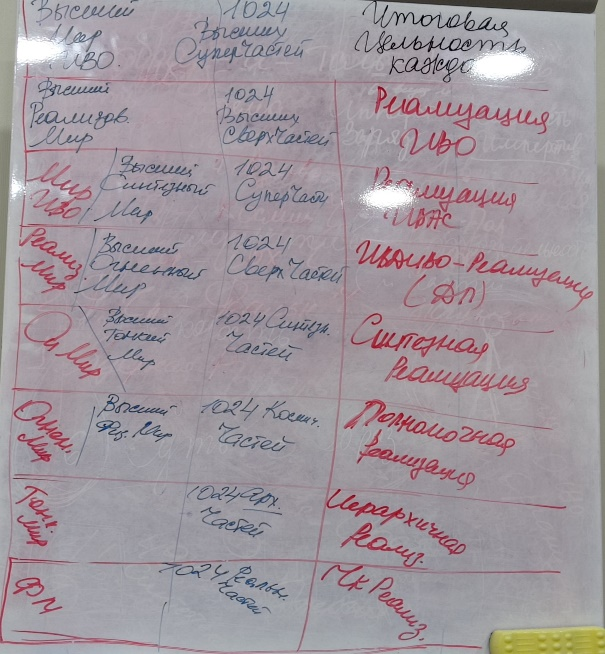 Высший
Мир
ИВО.
1024
Высших
СуперЧастей
Итоговая
Цельность
каждо
Высший
Реализов.
Мир
1024
Высших
СверхЧастей
Реализация
ИВО
Мир
ИВО
Высший
Синтезный
Мир
1024
СуперЧасти
Реализация
ИВАС
Реализ.
Мир
Высший
Огненный
Мир
1024
СверхЧастей
ИВАИВО-Реализация
(ДП)
Си Мир
Высший
Тонкий
Мир
1024 Синтезн.
Частей
Синтезная
Реализация
Огнен.
Мир
Высший
Физ. Мир
1024 Космич.
Частей
Полномочная
Реализация
Тонк.
Мир
1024 Арх.
Частей
Иерархичная
Реализ.
ФМ
1024
Частей
Мк Реализ.